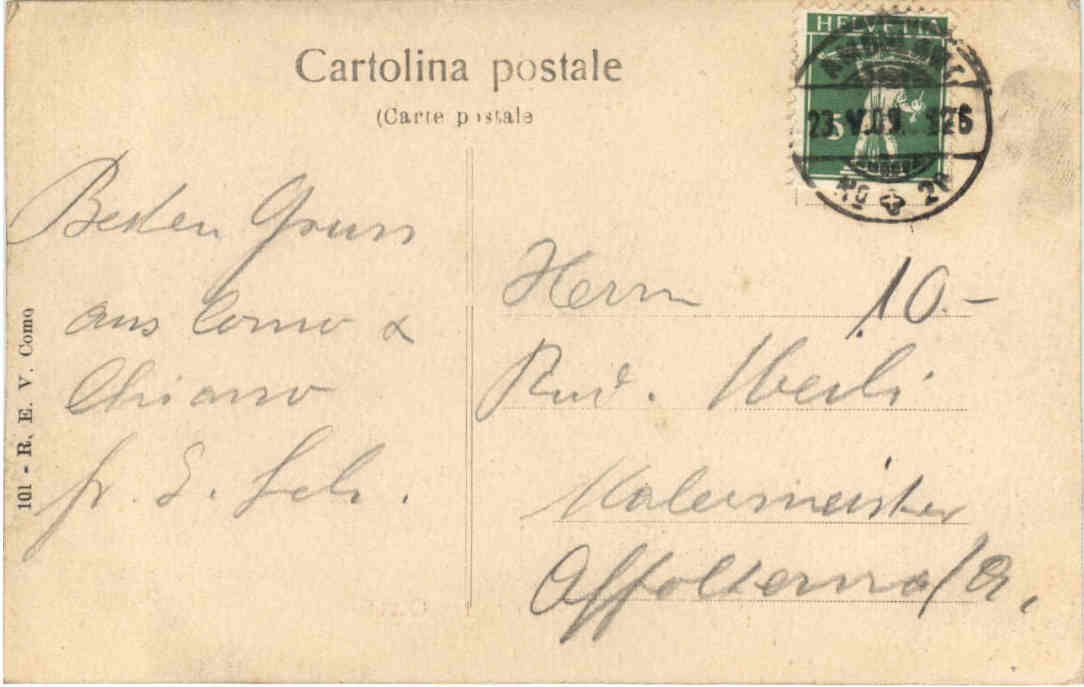 Cartolina postale
(Carte postale
HELVETIA
5
23.V.09.
No 20
Besten Gruss
aus Como &
Chiasso
fr. S. Sch.
Herrn
10.-
Rud.
Malermeister
Affoltern a/A.
101 - R. E. V. Como